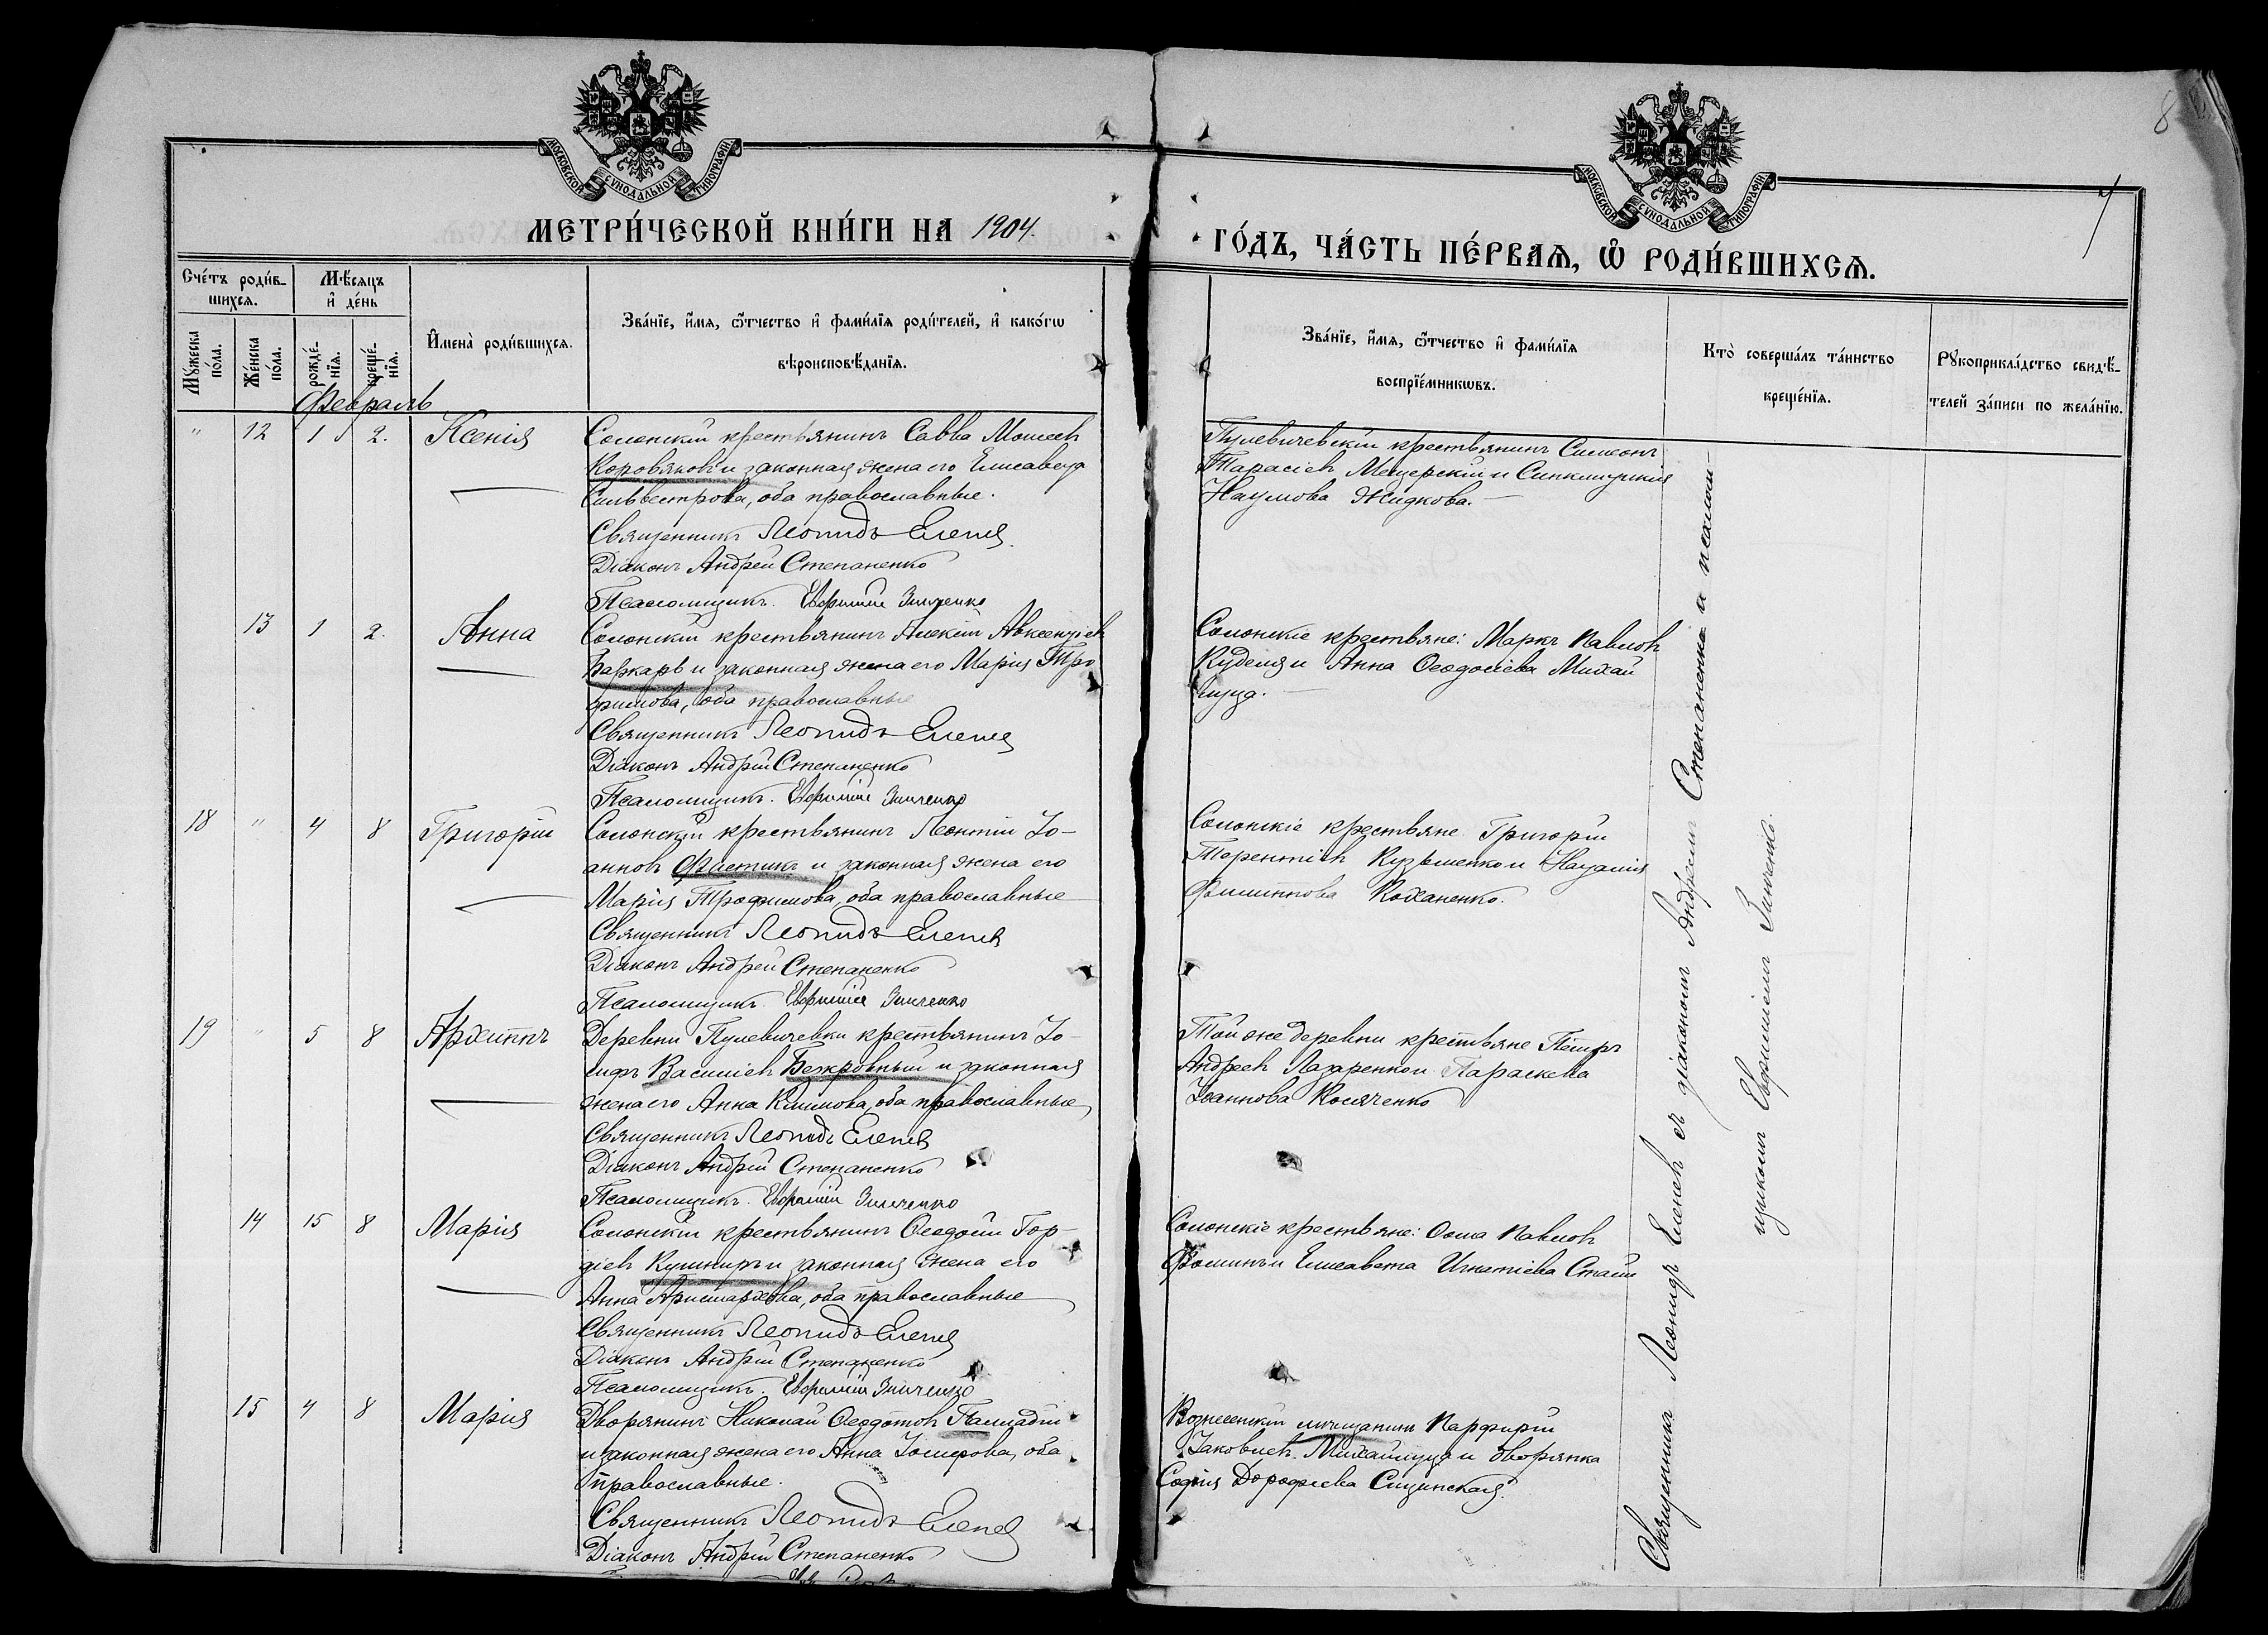 МОСКОВСКОЙ СѴНОДАЛЬНОЙ ТИПОГРАФІИ
МОСКОВСКОЙ СѴНОДАЛЬНОЙ ТИПОГРАФІИ
8
МЕТРИ́ЧЕСКОЙ КНИ́ГИ НА 1904.
ГО́ДЪ, ЧА́СТЬ ПЕ́РВАѦ, Ѡ҆ РОДИ́ВШИХСѦ.
Сче́тъ роди́в-
шихсѧ.
Мꙋ́жеска по́ла.
Же́нска по́ла.
Мѣ́сѧцъ
и҆ де́нь
рожде́-
нїѧ.
креще́-
нїѧ.
И҆мена̀ роди́вшихсѧ.
Зва́нїе, и҆́мѧ, ѻ҆́тчество и҆ фами́лїѧ роди́телей, и҆ како́гѡ
вѣроисповѣ́данїѧ.
Зва́нїе, и҆́мѧ, ѻ҆́тчество и҆ фами́лїѧ
воспрїе́мникѡвъ.
Кто̀ соверша́лъ та́инство
креще́нїѧ.
Рꙋкоприкла́дство свидѣ́-
телей за́писи по жела́нїю.
Февраль
" 12 1 2. Ксенія
Солонскій крестьянинъ Савва Моисеевъ
Коровяковъ и законная жена его Елисавета
Сильвестрова, оба православные.
Священникъ Леонидъ Еленевъ
Діаконъ Андрей Степаненко
Псаломщикъ. Евфимій Зинченко
Пулевичевскій крестьянинъ Симеонъ
Тарасіевъ Мещерскій и
Наумова Жидкова.
13 1 2. Анна
Солонскій крестьянинъ Алексій Авксентіевъ
и законная жена его Марія Тро
фимова, оба православные
Священникъ Леонидъ Еленевъ
Діаконъ Андрей Степаненко
Псаломщикъ. Евфимій Зинченко
Солонскіе крестьяне: Маркъ Павловъ
Куделя и Анна Ѳеодосіева Михай
луца.
18 " 4 8 Григорій
Солонскій крестьянинъ Леонтій Іо-
анновъ Фистикъ и законная жена его
Марія Трофимова, оба православные
Священникъ Леонидъ Еленевъ
Діаконъ Андрей Степаненко
Псаломщикъ Евфимій Зинченко
Солонскіе крестьяне Григорій
Терентіевъ Кузьменко и Наталія
Филиппова Коханенко.
19 " 5 8 Архиппъ
Деревни Пулевичевки крестьянинъ Іо-
сифъ Василіевъ Безкровный и законная
жена его Анна Климова, оба православные
Священникъ Леонидъ Еленевъ
Діаконъ Андрей Степаненко
Псаломщикъ. Евфимій Зинченко
Той же деревни крестьяне Петръ
Андреевъ Лазаренко и Параскева
Іоаннова Косяченко
14 15 8 Марія
Солонскій крестьянинъ Ѳеодосій Гор-
діевъ Кушниръ и законная жена его
Анна Аристархова, оба православные
Священникъ Леонидъ Еленевъ
Діаконъ Андрей Степаненко
Псаломщикъ. Евфимій Зинченко
Солонскіе крестьяне: Ѳома Павловъ
Фоминъ и Елисавета Игнатіева
15 4 8 Марія
Дворянинъ Николай Ѳеодотовъ Палладій
и законная жена его Анна Іосифова, оба
православные.
Священникъ Леонидъ Еленевъ
Діаконъ Андрей Степаненко
Вознесенскій мещанинъ Парфирій
Іаковлевъ Михайлуца и дворянка
Софія Дорофеева Сицинская.
Священникъ Леонидъ Еленевъ съ діакономъ Андреемъ Степаненко и псалом-
щикомъ Евфиміемъ Зинченко.